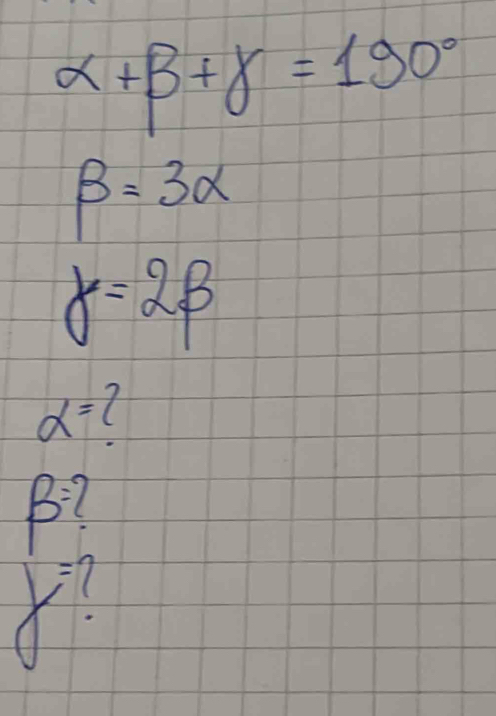 α + β + γ = 190°
β = 3α
γ = 2β
α = ?
β = ?
γ = ?